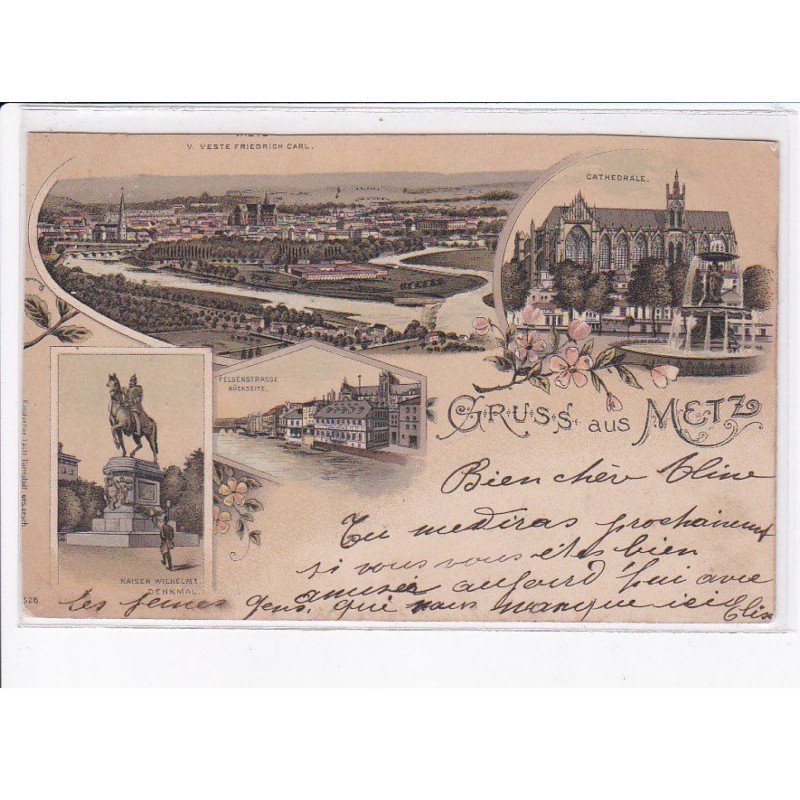 V. VESTE FRIEDRICH CARL.
CATHEDRALE.
FELSENSTRASSE
RÜCKSEITE.
GRUSS AUS METZ
KAISER WILHELM I.
DENKMAL
Bien chèr Cline
Tu me diras prochainement
si vous vous êtes bien
amusée aujourd'hui avec
les jeunes gens, qui nous manque ici Elise
328